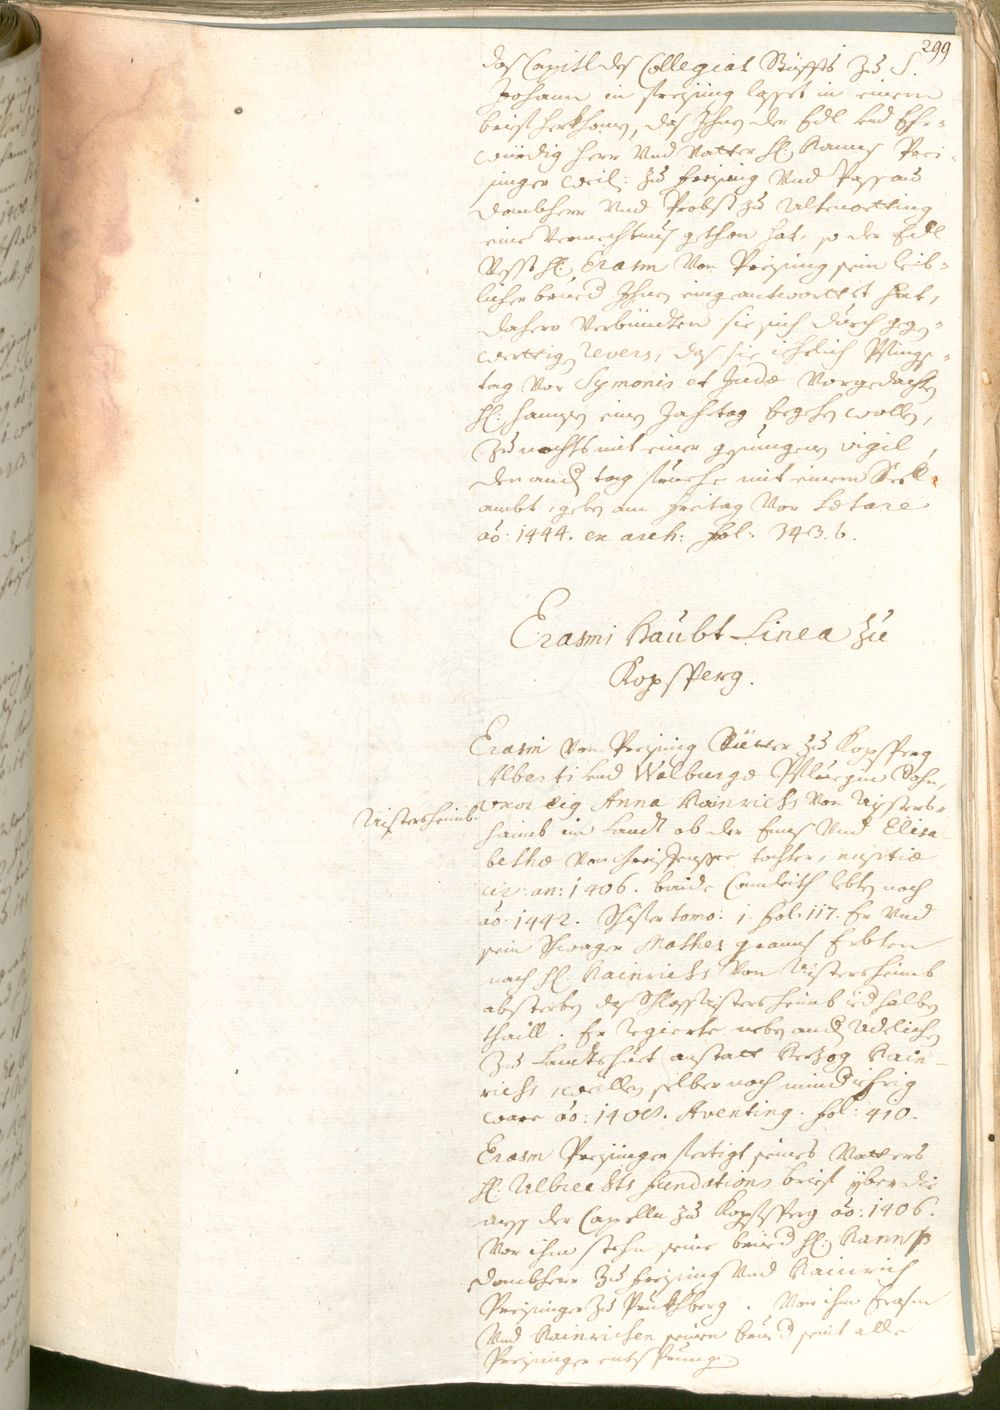 299
das Capitl des Collegiat Stüffts zu S.
Johann in Freysing lasset in einem
brief herkhomen, das Ihnen der Edl und Ehr-
würdig herr und Vatter H: Hanns Prei-
singer weil: zu Freysing und Passau
dombherr und Probst zu Altenoetting
eine Vermechtnus gethan hat, so der Edl
Vesst H: Erasm von Preysing sein leib-
licher brued Ihnen eingeantworttet hat,
dahero Verbündten sie sich durch geg-
werttig Revers, das sie ichrlich Pfingz-
tag vor Symonis et Judæ Vorgedachten
H: hansen einen Jahrtag begehen wollen,
zu nachts mit einer gesungnen vigil,
den andern tag fruehe mit einem Seel
ambt, geben am Freitag Vor Lætare
ao: 1444. ex arch: fol: 343. b.
Erasmi Haubt Linea zu
Kopfsperg.
Erasm von Preysing Ritter zu Kopfsperg
Alberti und Walburgæ Pfluegin Sohn,
uxor eig Anna Hainrichs von Aisters-
haimb im Landt ob der Enns und Elisa-
Aistersheimb.
bethæ von tochter, nuptiæ
cir: an: 1406. baide Conleith lebten noch
ao: 1442. tomo: 1. fol: 117. Er und
sein Schwager Mathes Erbten
nach H: Hainrichs von Aistersheimb
absterben das Schloss Aistersheimb ied halben
thaill. Er regierte neben andern Adelichen
zu Landtshuet anstatt Herzog Hain-
richs, weillen selber noch minderjährig
ware ao: 1408. Aventing. fol: 410.
Erasm Preysinger fertigt seines Vatters
H: Albrechts fundations brief yber die
mess der Capelln zu Kopfsperg ao: 1406.
Vor ihm stehn seine brued H: Hanns
dombherr zu Freysing und Hainrich
Preysinger zu . Von ihm Erasm
und Hainrichen seinen brued seint alle
Preysinger entsprungen